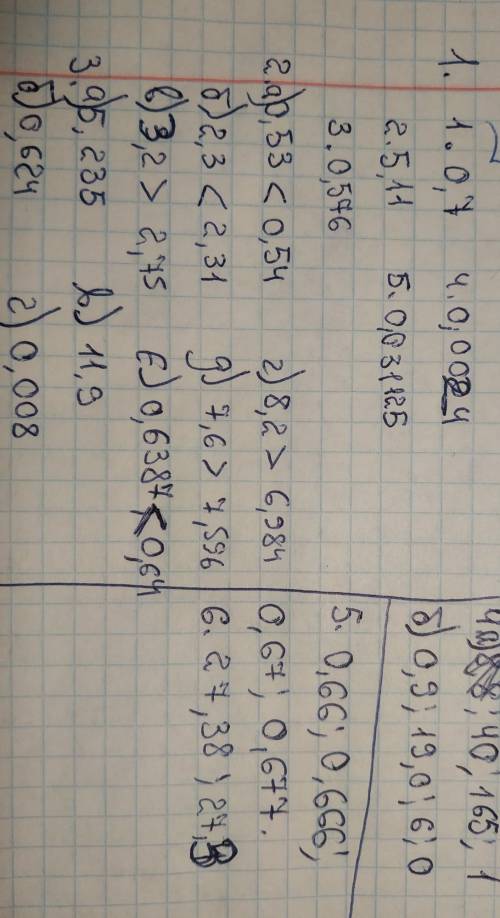 1. 1. 0,7 4. 0,0024
2. 5,11 5. 0,031125
3. 0,576
2. а) 0,53 < 0,54 г) 8,2 > 6,984
б) 2,3 < 2,31 д) 7,6 > 7,596
в) 3,2 > 2,75 е) 0,6387 < 0,64
3. а) 5,235 в) 11,9
б) 0,624 г) 0,008
4. а) 40; 165; 1
б) 0,9; 19,0; 6; 0
5. 0,66; 0,666;
0,67; 0,677.
6. 27,38; 27,3